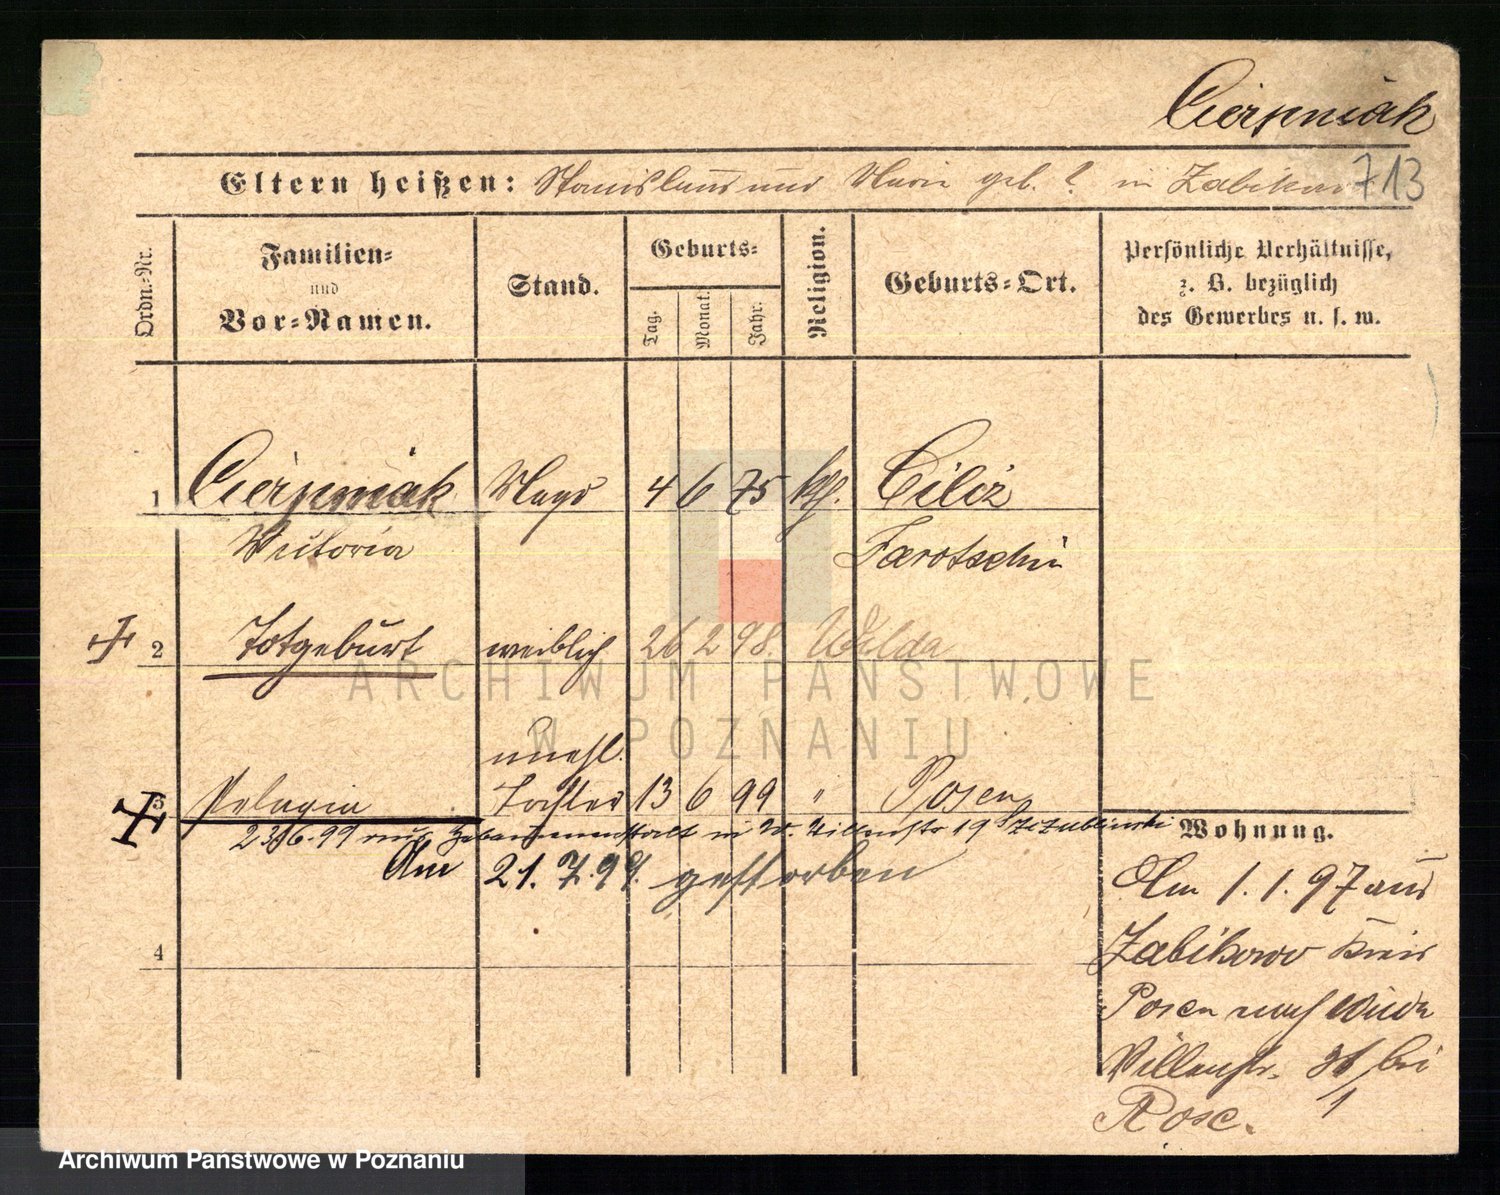 Cierpniak
713
Eltern heißen: Stanislaus und Marie geb. ? in Zabikow
Ordn.-Nr.
Familien-
und
Vor-Namen.
Stand.
Geburts-
Tag.
Monat.
Jahr.
Religion.
Geburts-Ort.
Persönliche Verhältnisse,
z. B. bezüglich
des Gewerbes u. s. w.
1 Cierpniak Magd 4 6 75 kth. Ciliz
Victoria Jarotschin
2 Totgeburt weiblich 26 2 98. Wilda
unehl.
3 Pelagia Tochter 13 6 99 " Posen
23/6.99 aus Hebammenanstalt in W. Villenstr 19
Am 21.7.99. gestorben
4
Wohnung.
Am 1.1.97 aus
Zabikowo Kreis
Posen nach Wilda
Villenstr. bei
Rose.
ARCHIWUM PAŃSTWOWE
W POZNANIU
Archiwum Państwowe w Poznaniu